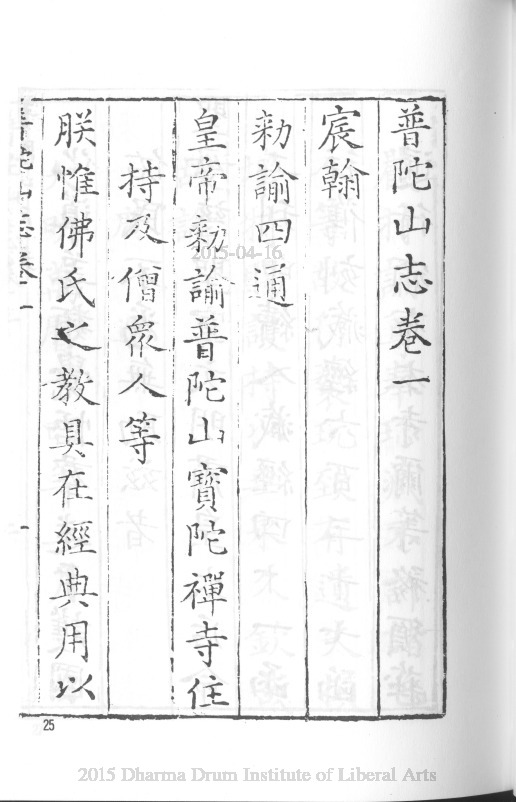 普陀山志卷一
宸翰
勑諭四通
皇帝勑諭普陀山寶陀禪寺住
持及僧衆人等
朕惟佛氏之教具在經典用以
普陀山志卷一
一
25
2015-04-16
2015 Dharma Drum Institute of Liberal Arts